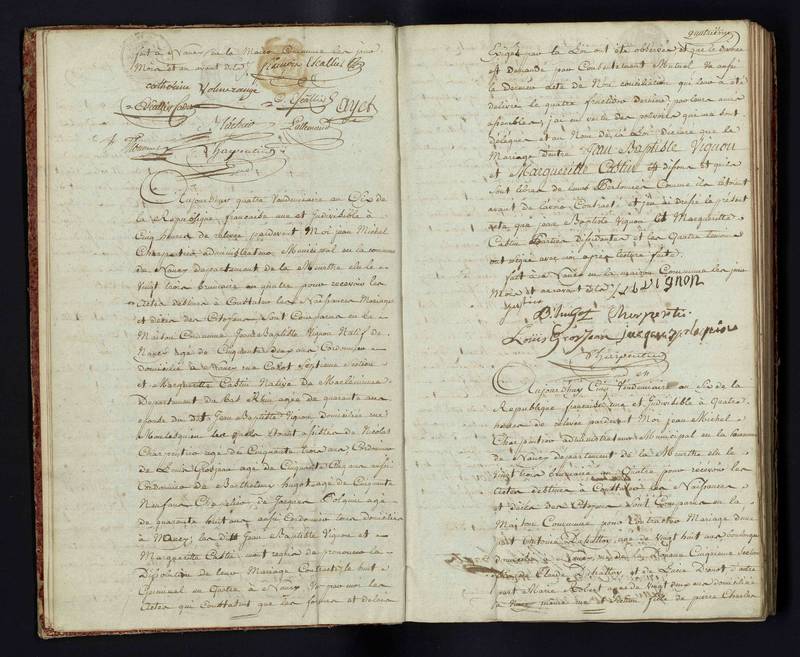 fait à Nancy en la Maison Commune les jour
Mois et an avant dits
Catherine Vollmerange
Ayet
Lallemand
Charpentier
Aujourdhuy quatre Vendemiaire an Six de
la Republique française une et Indivisible à
Cinq heures de relevée pardevant Moi jean Michel
Charpentier administrateur Municipal en la commune
de Nancy departement de la Meurthe elu le
Vingt trois brumaire an quatre pour recevoir les
actes destinés à Constater les Naissances Mariages
et décès des Citoyens Sont Comparus en la
Maison Commune Jean Baptiste Vignon Natif de
Nancy age de Cinquante deux ans Cordonnier
domicilié à Nancy rue Callot Septieme Section
et Marguerite Castin Native de
Departement du bas Rhin agée de quarante ans
epouse du dit Jean Baptiste Vignon domiciliée rue
Montesquieu les quels etant assistés de Nicolas
Charpentier age de Cinquante trois ans, Cordonnier
de Louis Grosjean age de Cinquante Cinq ans aussi
Cordonnier de Barthelemy hugot age de Cinquante
Neuf ans et de Jacques agé
de quarante huit ans aussi Cordonnier tous domiciliés
à Nancy; les dits Jean Baptiste Vignon et
Marguerite Castin ont requis de prononcer la
Dissolution de leur Mariage Contracté le huit
an Quatre à Nancy Vu par moi les
Actes qui Constatent que les formes et delais
quatrième
Exigés par la Loi ont été observés et que le divorce
est demandé par Consentement Mutuel Vu aussi
le Dernier acte de Non conciliation qui leur a été
delivré le quatre fructidor dernier par leurs amis
assemblés; j'ai en vertu des pouvoirs qui me sont
délégués et au Nom de la Loi declaré que le
Mariage d'entre Jean Baptiste Vignon
et Marguerite Castin est dissous et qu'ils
sont libres de leurs Personnes Comme ils l'étoient
avant de l'avoir Contracté et j'ai redigé le présent
acte que jean Baptiste Vignon et Marguerite
Castin Parties divorcées et les Quatre temoins
ont signé avec moi apres lecture faite.
fait à Nancy en la maison Commune les jour
Mois et an avant dits J. b. Vignon
B. hugot Charpentier
Louis Grosjean jacque
Charpentier
Aujourdhuy Cinq Vendemiaire an Six de la
Republique française une et Indivisible à Quatre
heures de relevée pardevant Moi jean Michel
Charpentier administrateur Municipal en la Commune
de Nancy departement de la Meurthe elu le
Vingt trois brumaire an Quatre pour recevoir les
Actes destinés à Constater les Naissances
et décès des Citoyens Sont Comparus en la
Maison Commune pour Contracter Mariage d'une
part Antoine age de Vingt huit ans
domicilié à Nancy Cinquieme Section
fils de Claude et de Lucie Drouot d'autre
part Marie Robert age de Vingt deux ans domiciliée
à Nancy même rue et Section fille de pierre Charles